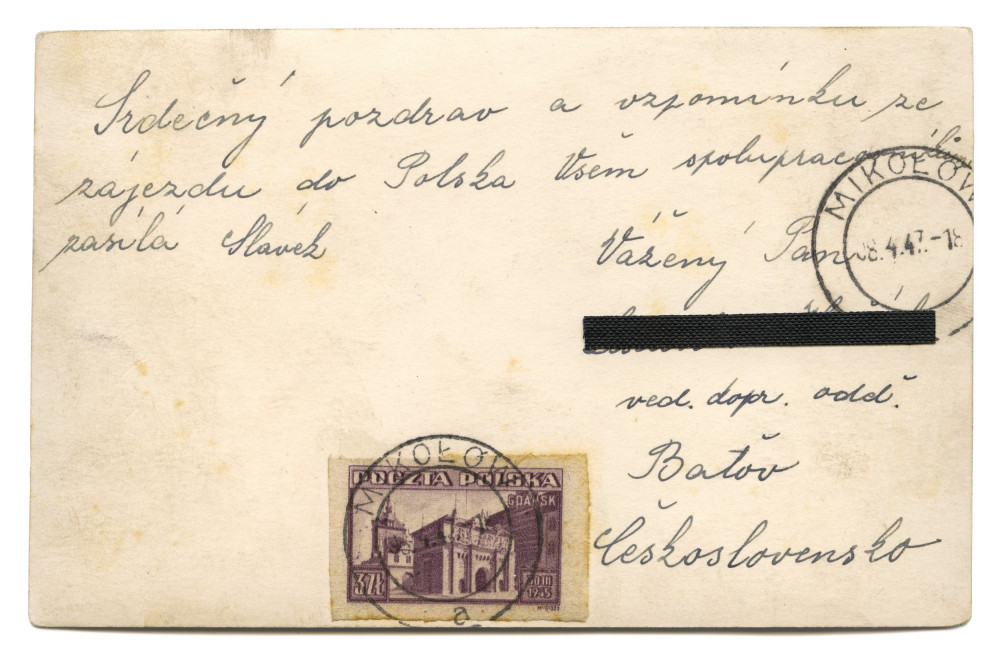 Srdečný pozdrav a vzpomínku ze
zájezdu do Polska Všem spolupracovníkům
zasílá Slávek
Vážený Pan
ved. dopr. odd.
Baťov
Československo
MIKOŁÓW
08.4.47.-18
POCZTA POLSKA
GDAŃSK
3 ZŁ
30 III
1945
MIKOŁÓW
a